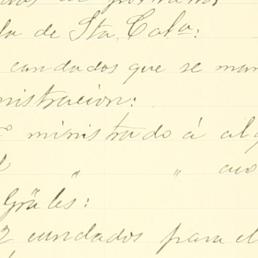 la de Sta. Cata:
candados que se man
nistracion:
ministrado á al
" "
Gräles:
2 candados para el